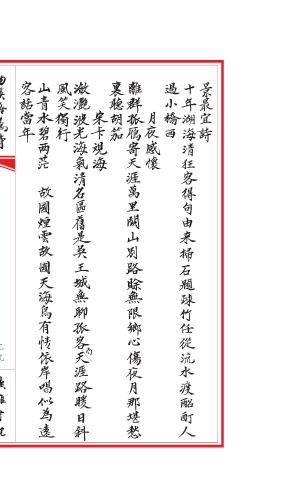 景最宜詩
十年湖海清狂客得句由來掃石題疎竹任從流水渡酩酊人
過小橋西
月夜感懷
離群孤雁寄天涯萬里關山別路賒無限鄉心傷夜月那堪愁
裏聽胡笳
柴卡觀海
瀲灔波光海氣清名區舊是吳王城無聊孤客天涯路暎日斜
風笑獨行
山青水碧兩茫 故國煙雲故國天海鳥有情依岸唱似為遠
客話當年